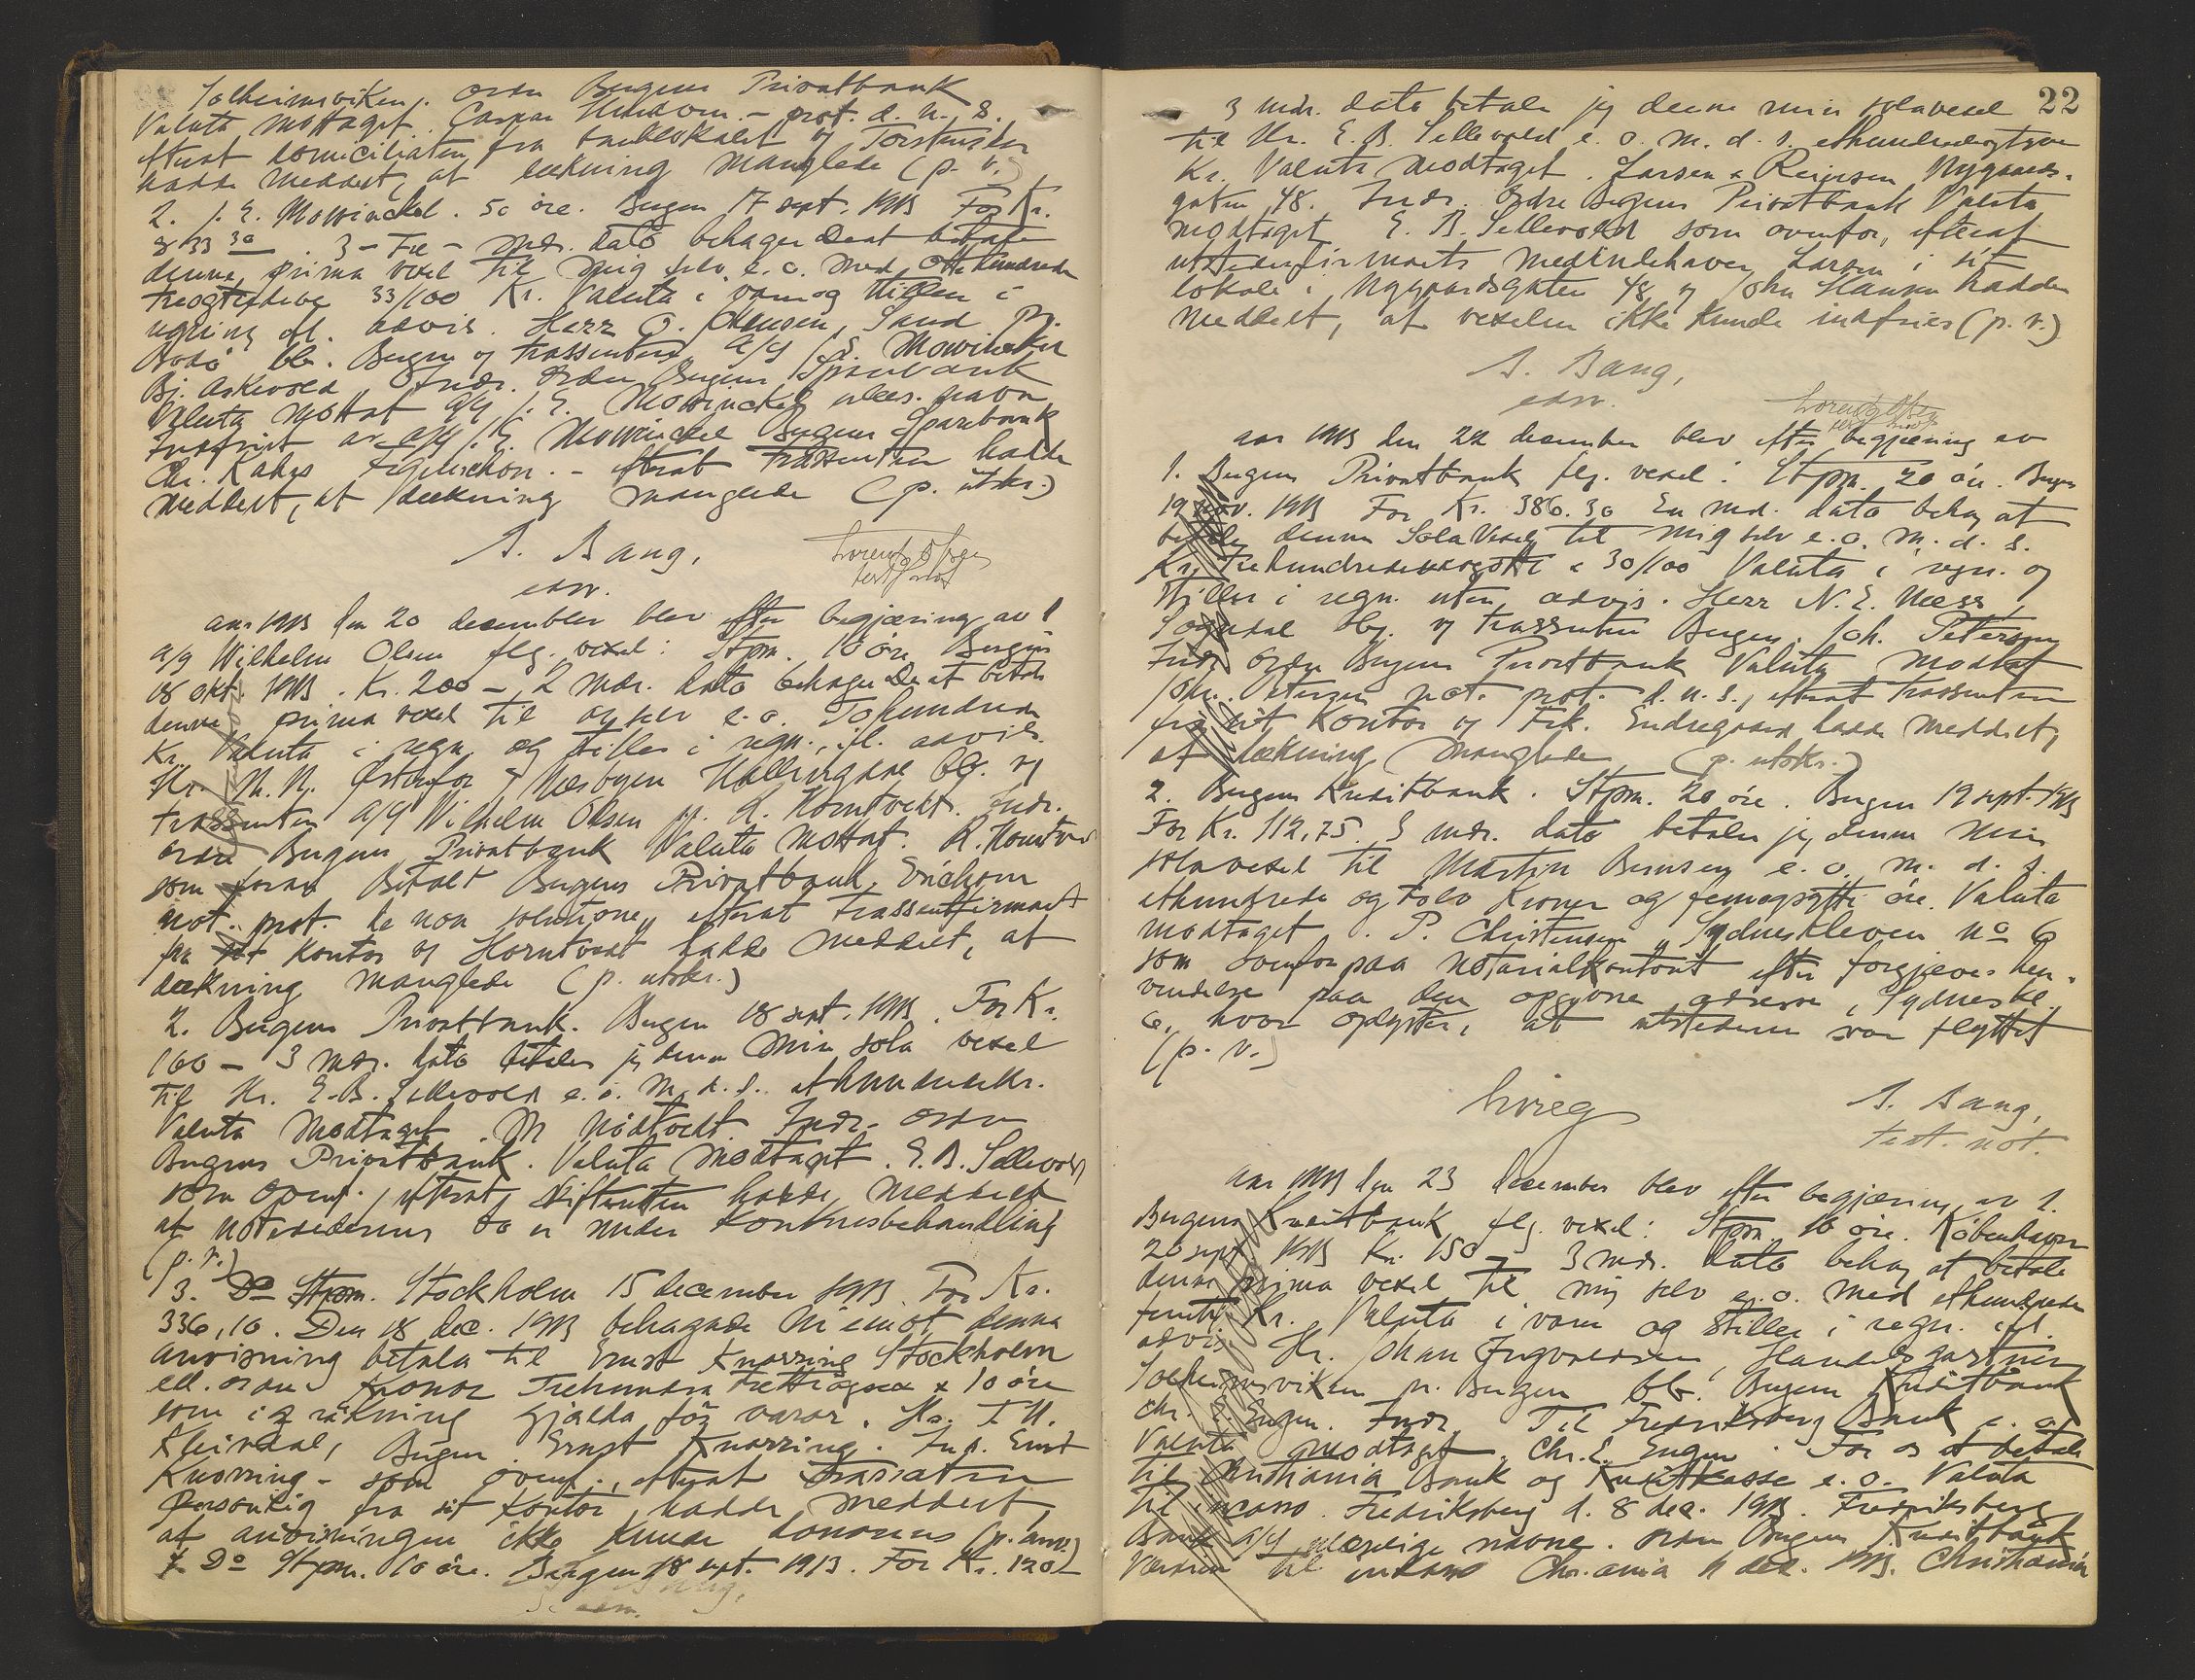 Solheimsviken. ordre Bergens Privatbank
Valuta mottaget. Caspar - prot. d. n. s.
efterat domiciliaten fra banklokalet og Torstensen
hadde meddelt, at dækning manglede (p. v.)
2. J. E. Mowinckel. 50 øre. Bergen 17 sept. 1913 For Kr.
833 30 . 3 - tre - mdr. dato behager De at betale
denne prima vexel til mig selv e. o. med ottehundrede
treogtredive 33/100 Kr. Valuta i varer og stilles i
regning efl. advis. Herr O. Clausen, Sand pr.
Bodø blt. Bergen og trassenten A/S J. E. Mowinckel
Bj. Askevold. Indr. ordre Bergens Sparebank
Valuta mottat A/S J. E. Mowinckel navn
Indfriet av A/S J. E. Mowinckel Bergens Sparebank
Chr. Kahrs . - efterat trassenten hadde
meddelt, at dækning manglede (p. utskr.)
S. Bang,
edsv.
Lorentz Olsen
test. not.
aar 1913 den 20 december blev efter begjæring av 1
A/S Wilhelm Olsen flg. vexel: Stpm. 10 øre Bergen
18 okt. 1913. Kr. 200 - 2 mdr. dato behager De at betale
denne prima vexel til os selv e. o. Tohundrede
Kr. Valuta i regn. og stilles i regn., ifl. advis.
Hr. N. N. Østenfor Næsbyen Hallingdal blt. og
trassenten A/S Wilhelm Olsen Horntvedt. Indr.
ordre Bergens Privatbank Valuta mottat. R. Horntvedt
som foran Betalt Bergens Privatbank Erichsen
not. prot. de non solutione, efterat trassentfirmaet
fra sit kontor og Horntvedt hadde meddelt, at
dækning manglede (p. utskr.)
2. Bergens Privatbank. Bergen 18 sept. 1913. For Kr.
100 - 3 mdr. dato betaler jeg denne min sola vexel
til Hr. E. B. Sellevold e. o. m. d. s. ethundredekr.
Valuta modtaget. M Nødtvedt. Indr. ordre
Bergens Privatbank. Valuta modtaget. E. B. Sellevold
som ovenf., efterat skifteretten hadde meddelt
at utstederens bo er under konkursbehandling
(p. v.)
3. Do Stpm. Stockholm 15 december 1913. For Kr.
336,10. Den 18 dec. 1913 behagade Ni emot denna
anvisning betala til Ernst Knorring Stockholm
ell. order kronor Trehundra trettiosex & 10 öre
som i räkning gjälda för varor. Hr. T. H.
Kleivdal, Bergen. Ernst Knorring. Ind. Ernst
Knorring - som ovenf., efterat trassaten
personlig fra sit kontor hadde meddelt,
at anvisningen ikke kunde honoreres (p. anv.)
4. Do Stpm. 10 øre. Bergen 18 sept. 1913. For Kr. 120
S. Bang,
edsv.
22
3 mdr. dato betaler jeg denne min solavexel
til Hr. E. B. Sellevold e. o. m. d. s. ethundredeogtyve
Kr. Valuta modtaget. Larsen & Reiersen Nygaards-
gaten 48. Indr. ordre Bergens Privatbank Valuta
modtaget E. B. Sellevold som ovenfor, efterat
utstederfirmaets medindehaver Larsen i sit
lokale i Nygaardsgaten 48 og John Hansen hadde
meddelt, at vexelen ikke kunde indfries (p. v.)
S. Bang,
edsv.
Lorentz Olsen
test. not.
aar 1913 den 22 december blev efter begjæring av
1. Bergens Privatbank flg. vexel: Stpm. 20 øre. Bergen
19 nov. 1913 For Kr. 386.30 En md. dato behag at
betale denne Sola Vexel til mig selv e. o. m. d. s.
Kr. Trehundredeottiogsex & 30/100 Valuta i regn. og
stilles i regn. uten advis. Herr N. E. Næss,
Sogndal blt. og trassenten Bergen. Joh. Petersen
Indr. ordre Bergens Privatbank Valuta modtat
Joh. Petersen not. prot. d. n. s., efterat trassenten
fra sit kontor og Frk. Endregaard hadde meddelt,
at dækning manglede (p. utskr.)
2. Bergens Kreditbank. Stpm. 20 øre. Bergen 19 sept. 1913
For Kr. 112,75. 3 mdr. dato betaler jeg denne min
solavexel til Martin Berntsen e. o. m. d. s.
ethundrede og tolv Kroner og femogsytti øre. Valuta
modtaget. P. Christensen, Sydneskleven No 6
som ovenfor paa notarialkontoret efter forgjæves hen-
vendelse paa den opgivne adresse, Sydneskl.
6, hvor oplystes, at utstederen var flyttet
(p. v.)
S. Bang,
test. not.
Aar 1913 den 23 december blev efter begjæring av 1.
Bergens Kreditbank flg. vexel: Stpm. 10 øre. København
20 sept. 1913 Kr. 150 - 3 mdr. dato behag at betale
denne prima vexel til mig selv e. o. med ethundrede
femti Kr. Valuta i varer og stilles i regn. ifl.
advis Hr. Johan Ingvaldsen, Handelsgartner,
Solheimsviken pr. Bergen blt. Bergens Kreditbank
Chr. E. Engen. Indr. Til Fredriksberg Bank e. o.
Valuta modtaget. Chr. E. Engen. For os at betale
til Kristiania Bank og Kreditkasse e. o. Valuta
til incasso. Fredriksberg d. 8 dec. 1913. Fredriksberg
Bank A/S ulæselige navne. ordre Bergens Kreditbank
Værdien til inkasso Chr.ania 11 dec. 1913. Christiania